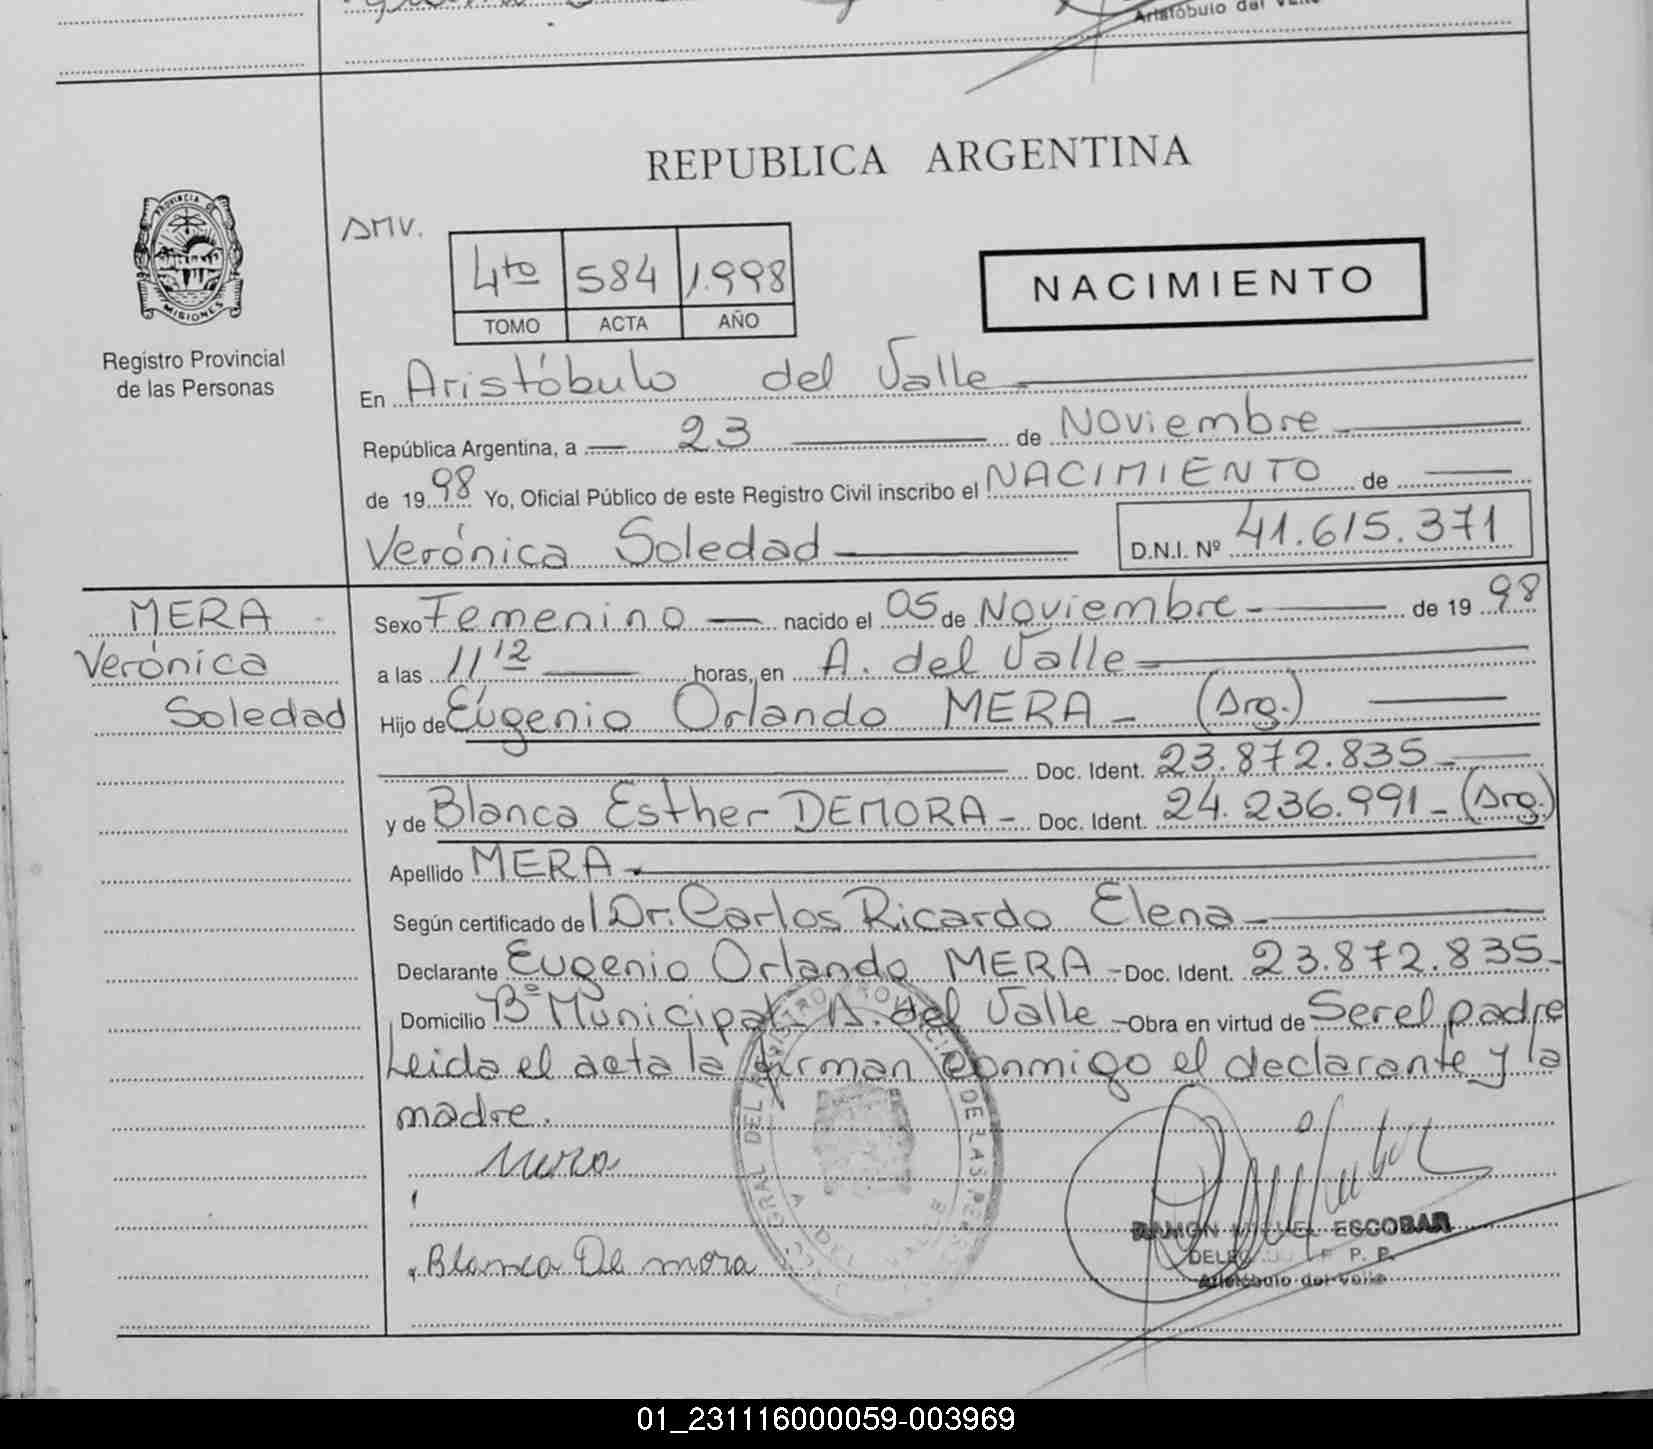 Aristóbulo del Valle
REPUBLICA ARGENTINA
PROVINCIA DE
MISIONES
Registro Provincial
de las Personas
SMV.
4to 584 1.998
TOMO ACTA AÑO
NACIMIENTO
En Aristóbulo del Valle
República Argentina, a 23 de Noviembre
de 1998 Yo, Oficial Público de este Registro Civil inscribo el NACIMIENTO de
Verónica Soledad D.N.I. Nº 41.615.371
MERA
Verónica
Soledad
Sexo Femenino nacido el 05 de Noviembre de 1998
a las 11 12 horas, en A. del Valle
Hijo de Eugenio Orlando MERA (Arg.)
Doc. Ident. 23.872.835
y de Blanca Esther DEMORA Doc. Ident. 24.236.991 (Arg.)
Apellido MERA
Según certificado de Dr. Carlos Ricardo Elena
Declarante Eugenio Orlando MERA Doc. Ident. 23.872.835
Domicilio Bº Municipal A. del Valle Obra en virtud de Ser el padre
Leida el acta la firman conmigo el declarante y la
madre.
Mera
Blanca De mora
RAMON MIGUEL ESCOBAR
P. P.
Aristóbulo del Valle
01_231116000059-003969